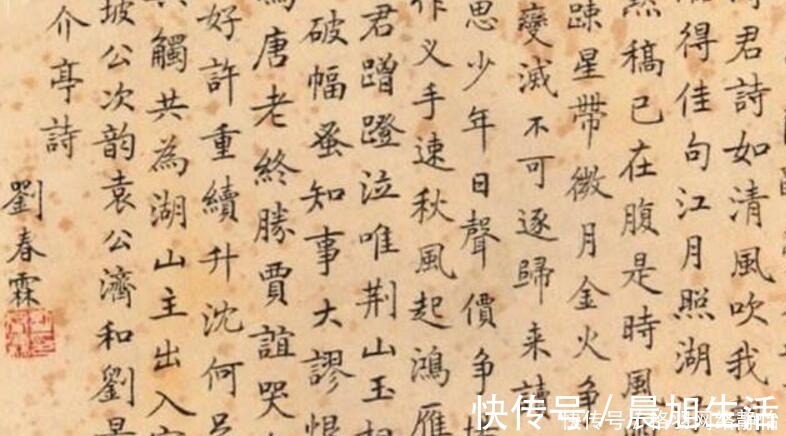 君詩如清風吹我
得佳句江月照湖
然稿已在腹是時風
疎星帶微月金火争
變滅不可逐歸来讀
思少年日聲價争
作义手速秋風起鴻雁
君蹭蹬泣唯荆山玉
破幅蚤知事大謬恨
為唐老終勝賈誼哭
好許重續升沈何足
觸共為湖山主出入
坡公次韵袁公濟和劉景
介亭詩
劉春霖
快传号/晨旭生活